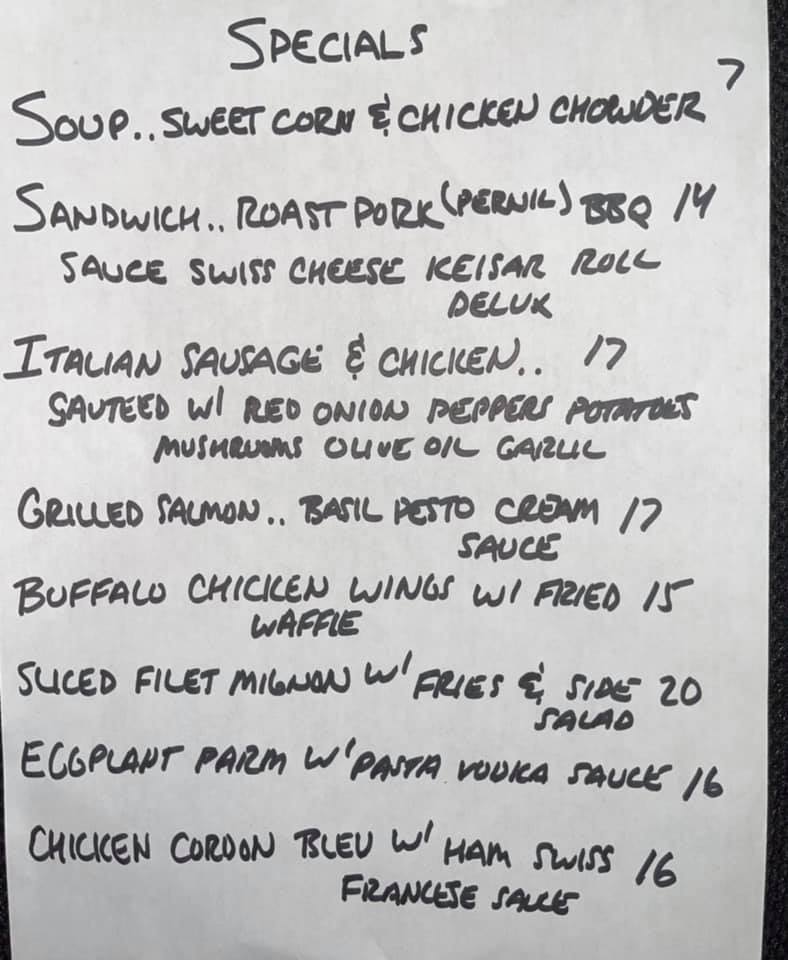 SPECIALS
SOUP.. SWEET CORN & CHICKEN CHOWDER 7
SANDWICH.. ROAST PORK (PERNIL) BBQ 14
SAUCE SWISS CHEESE KEISAR ROLL
DELUX
ITALIAN SAUSAGE & CHICKEN.. 17
SAUTEED W/ RED ONION PEPPERS POTATOES
MUSHROOMS OLIVE OIL GARLIC
GRILLED SALMON.. BASIL PESTO CREAM 17
SAUCE
BUFFALO CHICKEN WINGS W/ FRIED 15
WAFFLE
SLICED FILET MIGNON W/ FRIES & SIDE 20
SALAD
EGGPLANT PARM W/ PASTA VODKA SAUCE 16
CHICKEN CORDON BLEU W/ HAM SWISS 16
FRANCESE SAUCE